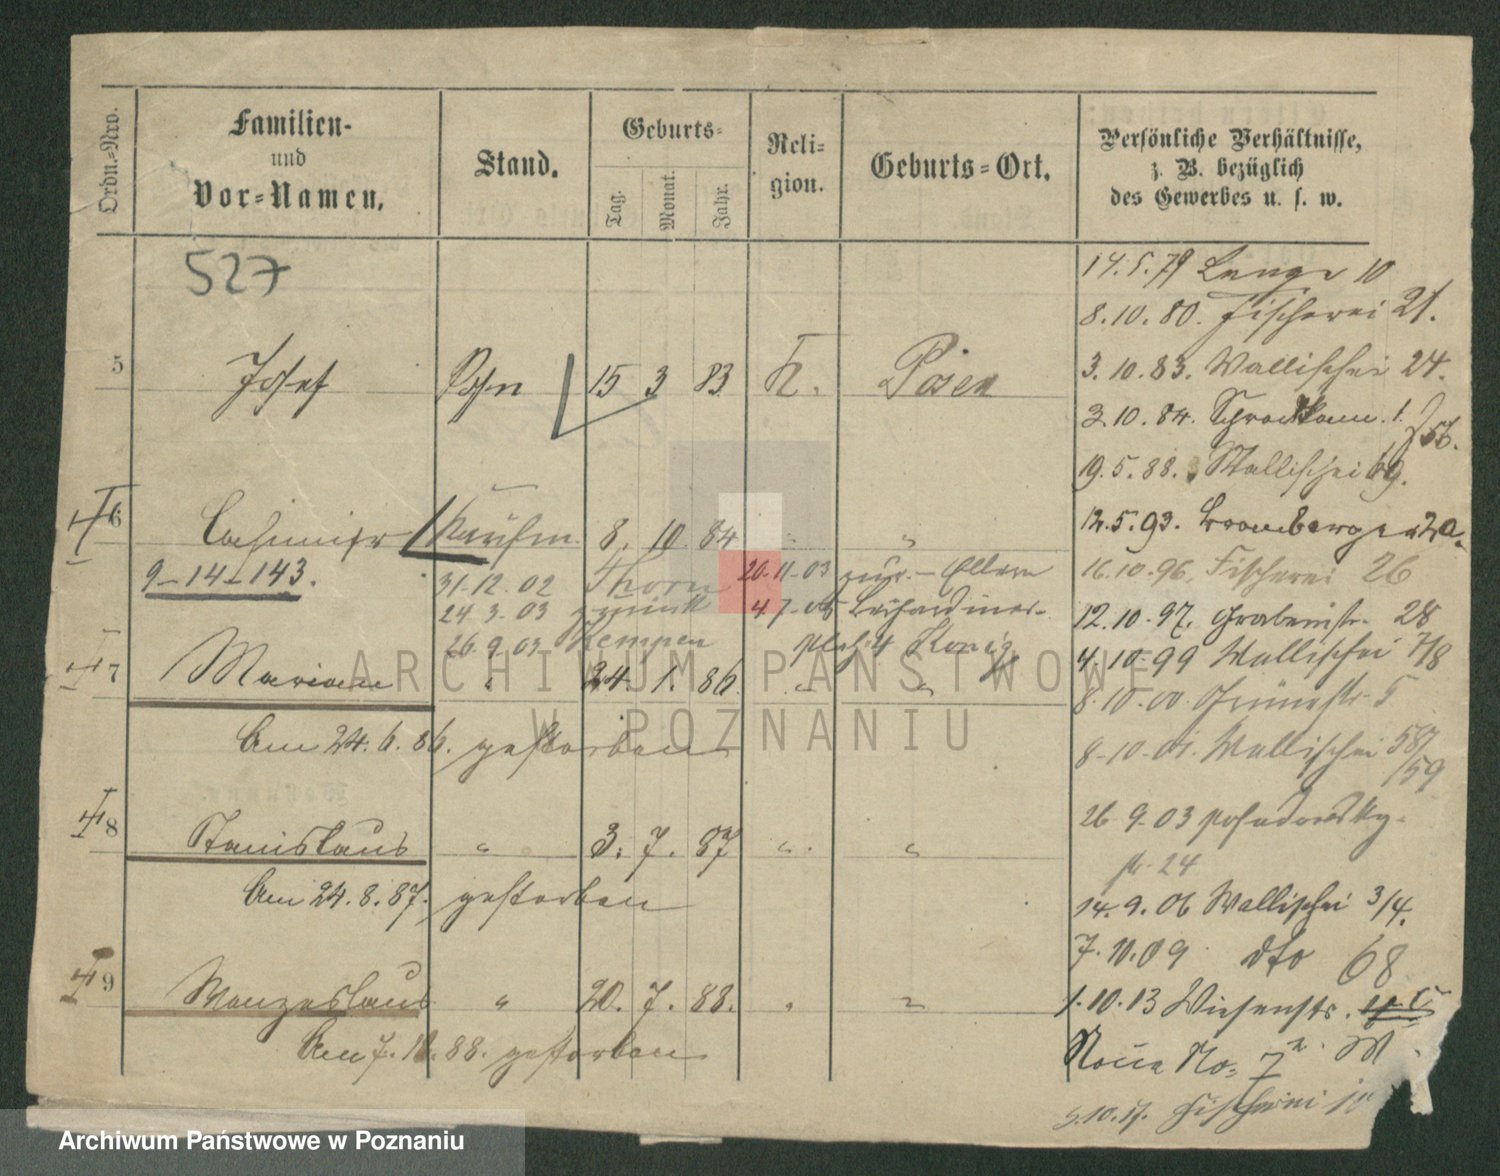 Ordn.=Nro.
Familien-
und
Vor=Namen.
Stand.
Geburts=
Tag.
Monat.
Jahr.
Reli=
gion.
Geburts=Ort.
Persönliche Verhältnisse,
z. B. bezüglich
des Gewerbes u. s. w.
527
14.5.79 Lange 10
8.10.80. Fischerei 21.
5 Josef Sohn 15 3 83 K. Posen
3.10.83. Wallischei 24.
3.10.84. 1.
19.5.88. Wallischei 69.
6 Casimir Kaufm. 8. 10. 84 " "
12.5.93. Bromberger 20.
9-14-143.
31.12.02 Thorn 20.11.03 zur. Eltern
16.10.96. Fischerei 26
24.3.03 zurück 4.7.05 Bernhardiner-
12.10.97. Grabenstr. 28
26.9.03 Kempen platz 4 König
4.10.99 Wallischei 7/8
7 Marian " 24. 1. 86. " "
8.10.00 Grünestr. 5
Am 24.6.86. gestorben
8.10.01. Wallischei 58/59
8 Stanislaus " 3. 7. 87 " "
26.9.03 Posadowsky-
str. 24
Am 24.8.87. gestorben
14.9.06 Wallischei 3/4.
7.10.09 dto 68
9 Wenzeslaus " 20. 7. 88. " "
1.10.13 Wiesenstr.
Am 7. 88. gestorben
Neue No= 7
5.10.17. Fischerei
ARCHIWUM PAŃSTWOWE
W POZNANIU
Archiwum Państwowe w Poznaniu